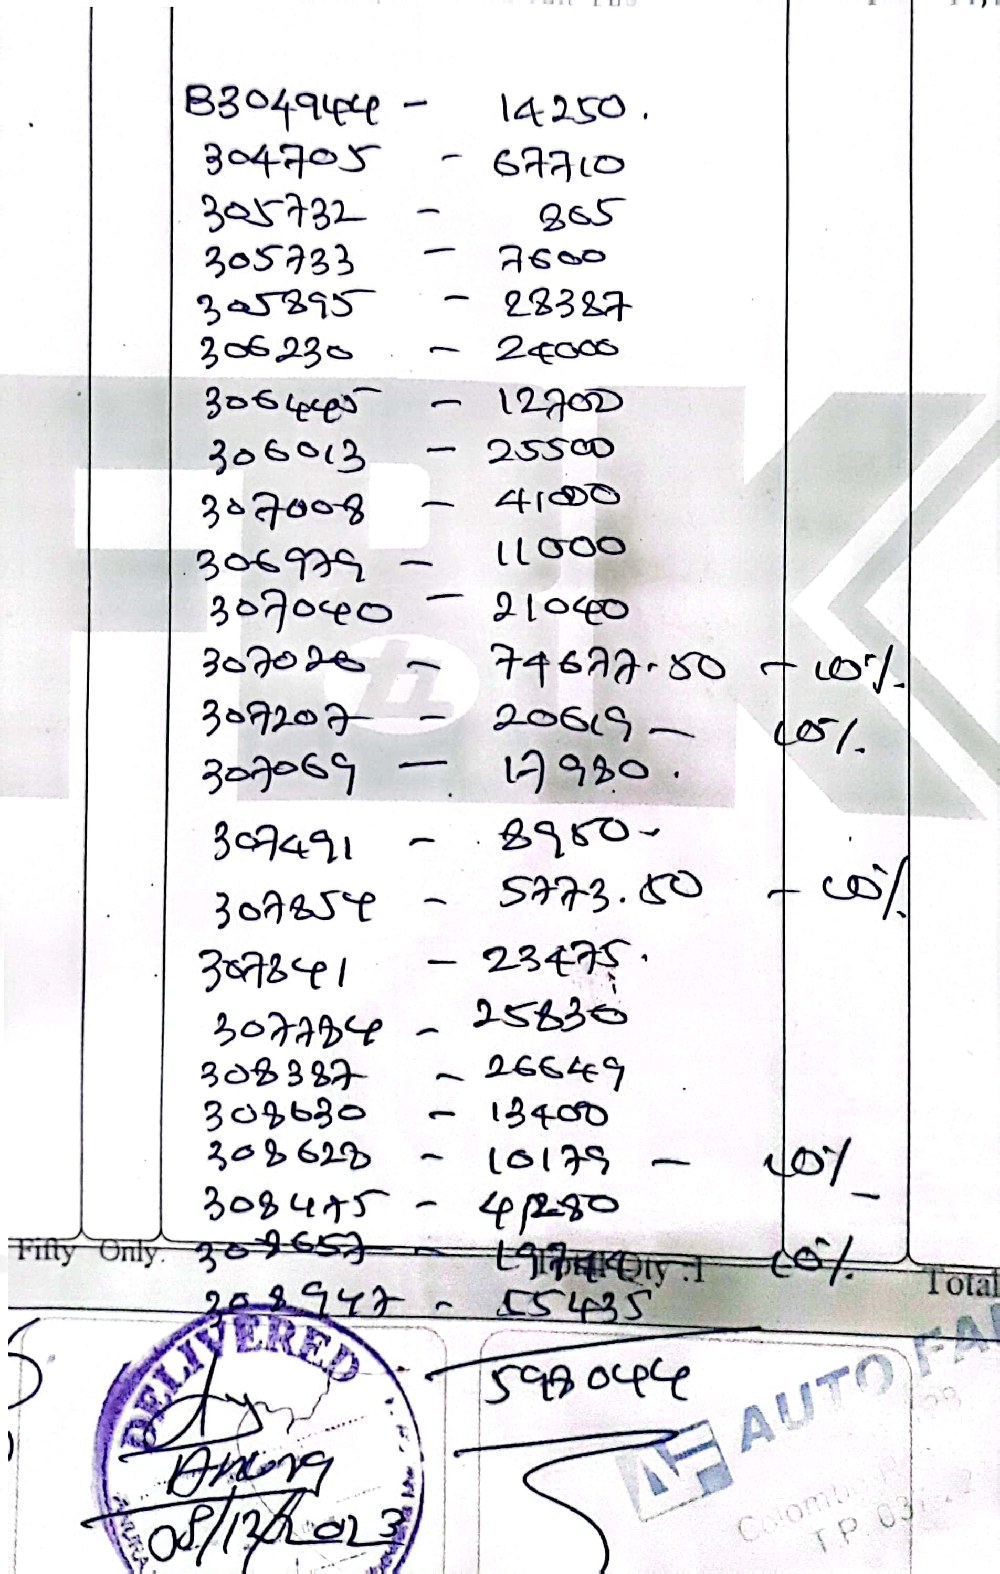 B304944 - 14250.
304705 - 67710
305732 - 865
305733 - 7600
305895 - 28387
306230 - 24000
306445 - 12700
306013 - 25500
307008 - 41000
306979 - 11000
307040 - 21040
307026 - 74677.50 - 10%
307207 - 20619 - 10%
307069 - 17980.
307491 - 8950
307854 - 5773.50 - 10%
307841 - 23475.
307784 - 25830
308387 - 26649
308630 - 13400
308628 - 10179 - 10%
308475 - 41280
Fifty Only. 308657 - 19744 10%
Qty :1 Total
308947 - 55435
598044
DELIVERED
Anura
08/12/2023
AUTO FA
T.P. 03